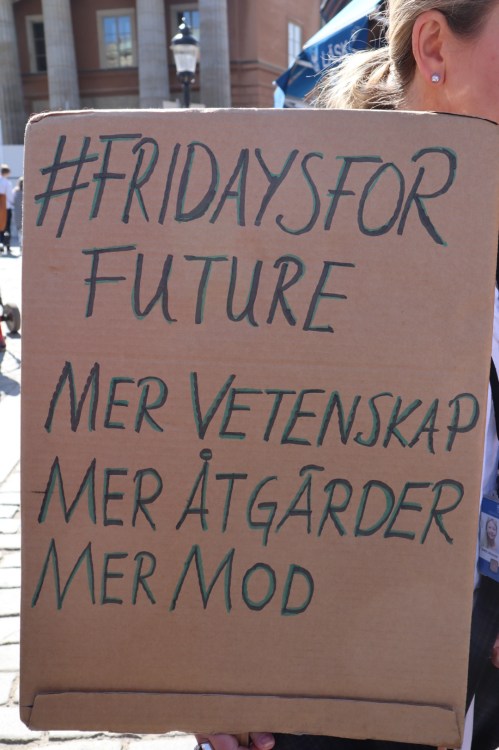 #FRIDAYSFOR
FUTURE
MER VETENSKAP
MER ÅTGÄRDER
MER MOD